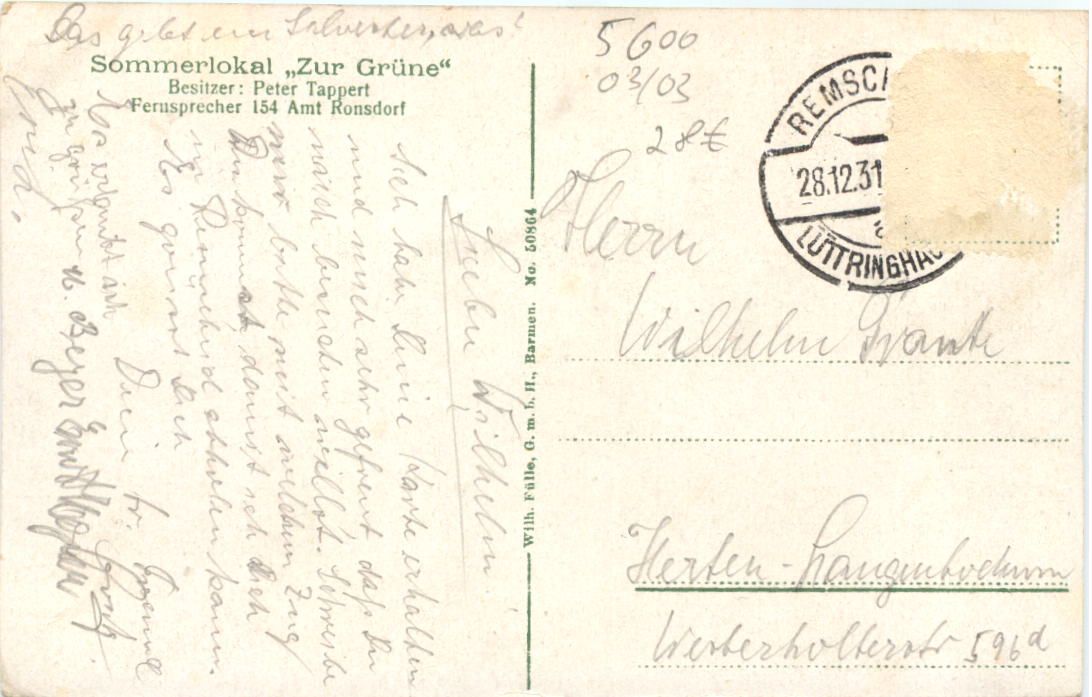 Das gibt ein Silvester, was!
Sommerlokal „Zur Grüne“
Besitzer: Peter Tappert
Fernsprecher 154 Amt Ronsdorf
Lieber Wilhelm
Ich habe Deine Karte erhalten
und mich sehr gefreut daß Du
mich besuchen willst. Schreibe
mir bitte mit welchem Zug
Du kommst damit ich Dich
in Remscheid abholen kann.
Es grüsst Dich
Dein tr. Freund
Ernst
Wilh. Fülle, G. m. b. H., Barmen. No. 50864
5600
03/03
28€
REMSC
28.12.31
LÜTTRINGHAU
Herrn
Wilhelm
Herten-Langenbochum
Westerholterstr 596d